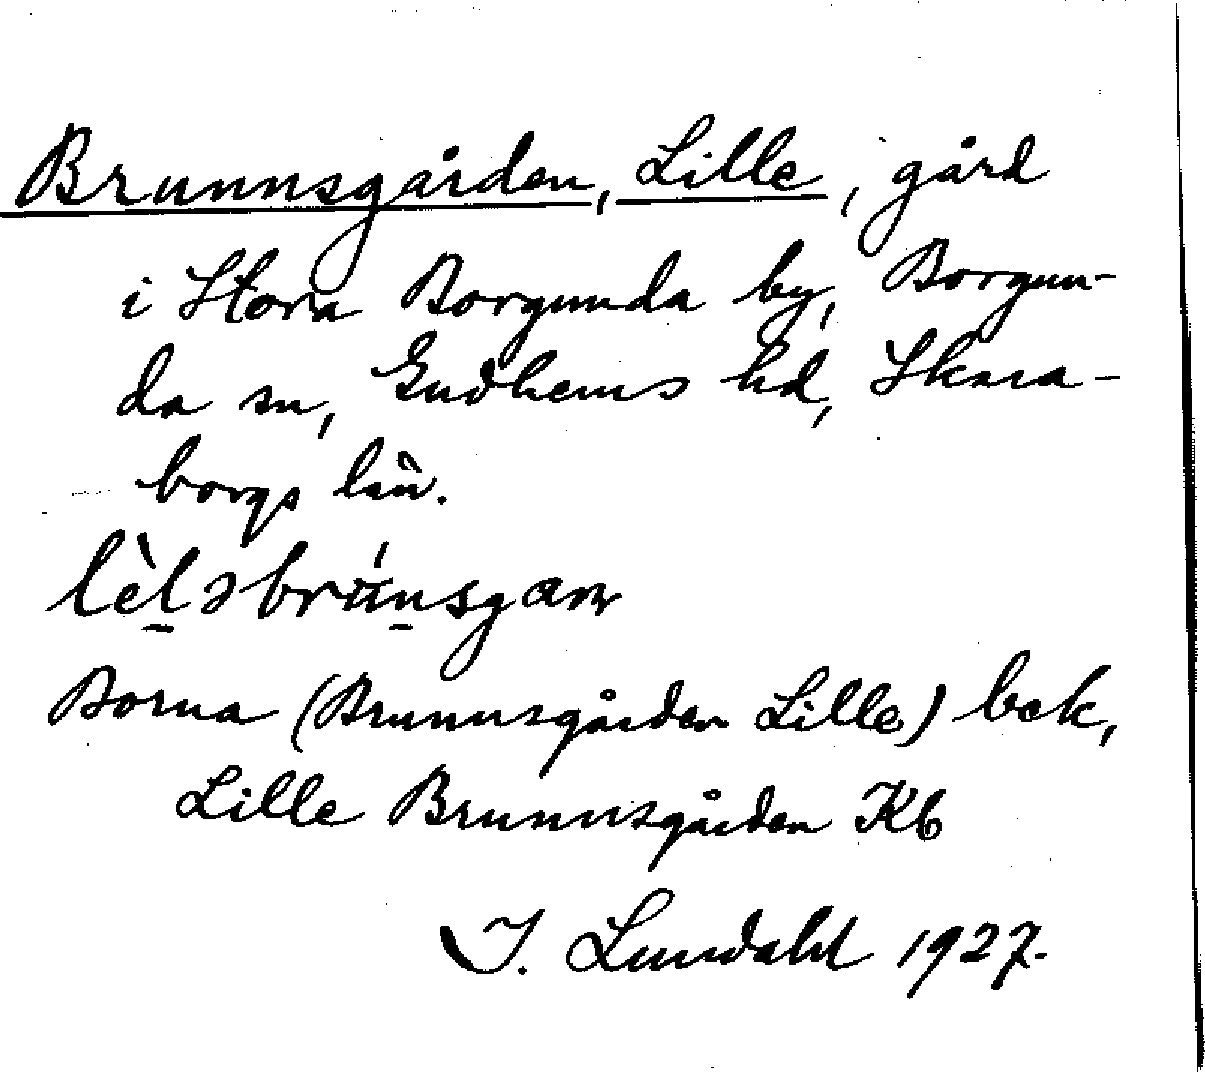 Brunnsgården, Lille, gård
i Stora Borgunda by, Borgun-
da sn, Gudhems hd, Skara-
borgs län.
Borna (Brunnsgården Lille) bek,
Lille Brunnsgården Kb
I. Lundahl 1927.